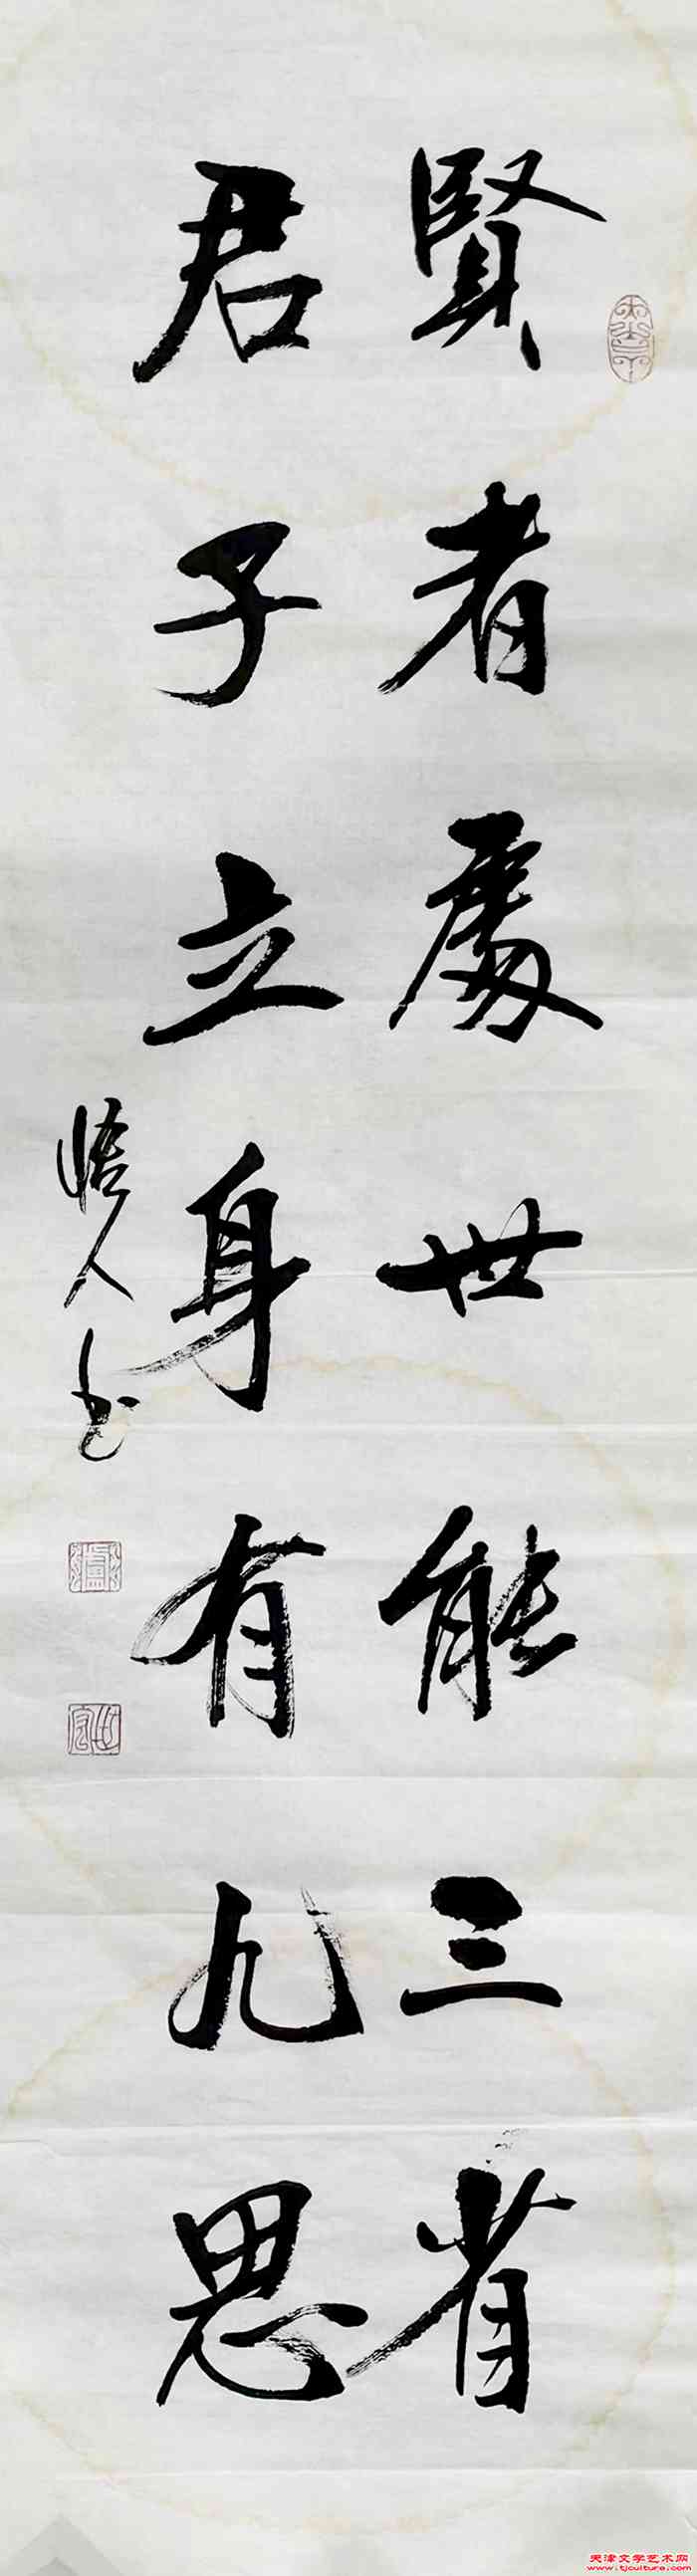 賢者處世能三省
君子立身有九思
悟人书
天津文学艺术网
www.tjculture.com